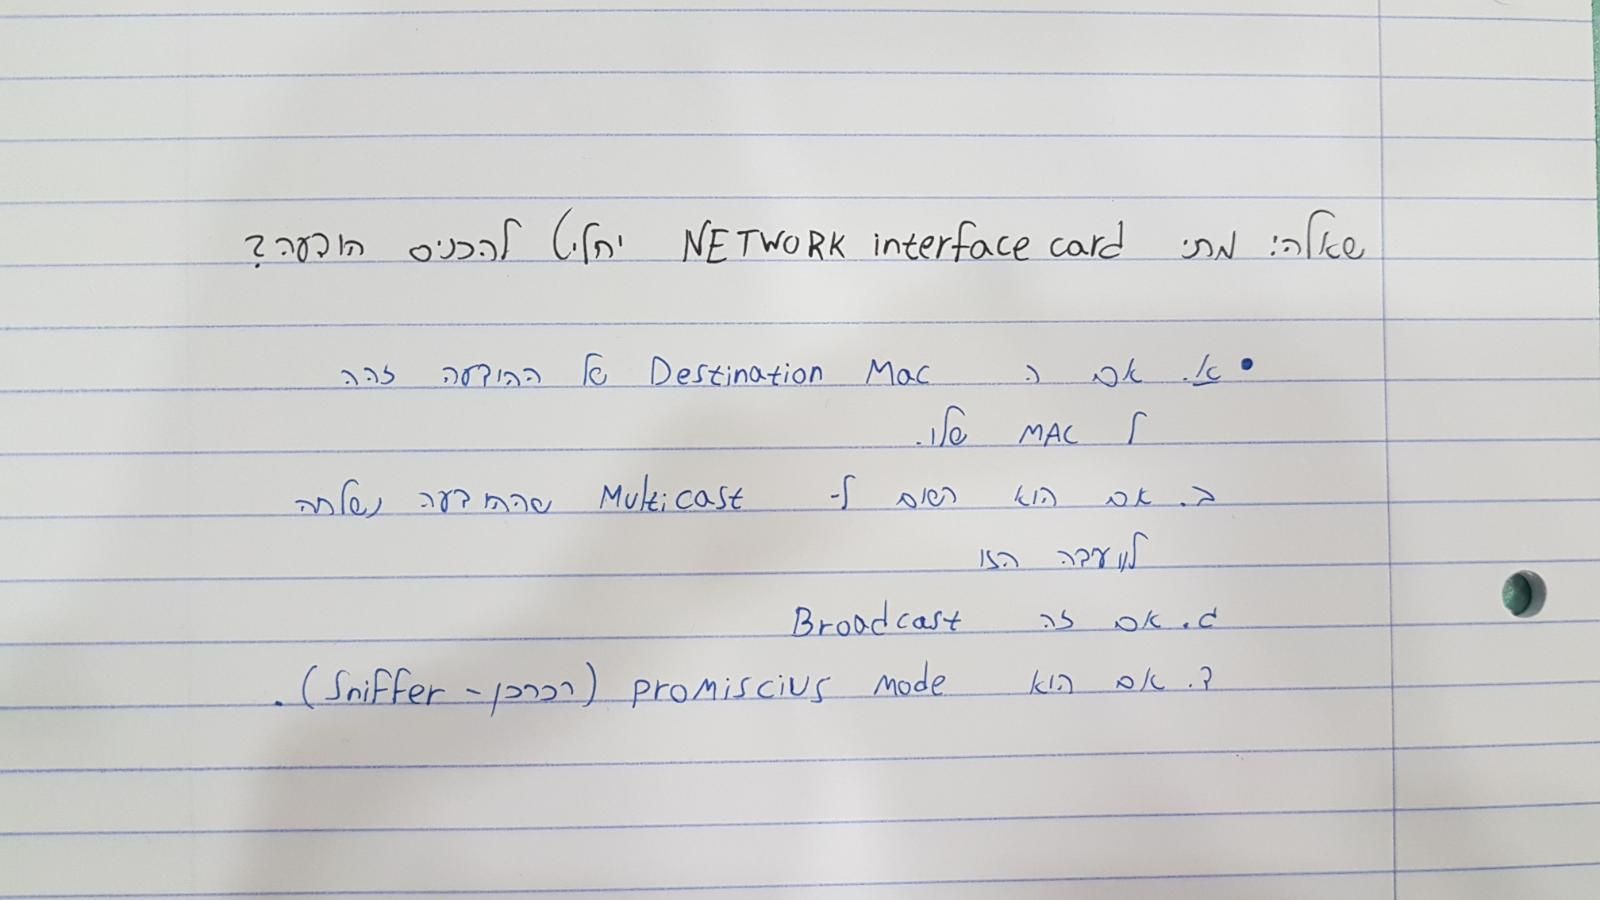 שאלה: מתי NETWORK interface card יחליט להכניס הודעה?
• א. אם ה Destination Mac של ההודעה זהה
ל MAC שלו.
ב. אם הוא רשום ל- Multicast שההודעה נשלחה
לוועדה הזו
ג. אם זה Broadcast
ד. אם הוא promiscius mode (רכרכן - Sniffer).